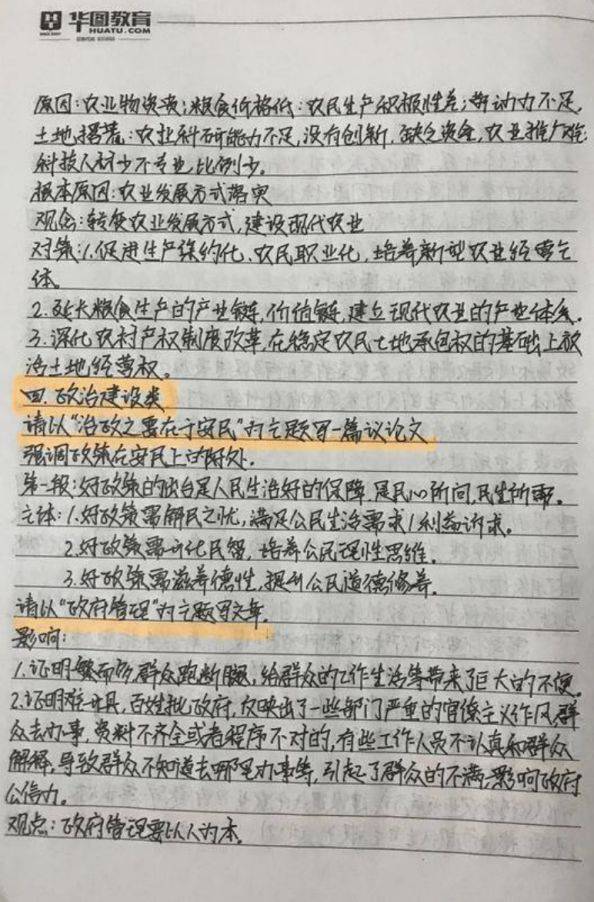 华图教育
HUATU.COM
原因:农业物资贵;粮食价格低:农民生产积极性差;劳动力不足,
土地撂荒:农业科研能力不足,没有创新,缺乏资金,农业推广难;
科技人才少不专业,比例少。
根本原因:农业发展方式落实
观念:转变农业发展方式,建设现代农业
对策:1.促进生产集约化、农民职业化,培养新型农业经营主
体。
2.延长粮食生产的产业链,价值链,建立现代农业的产业体系。
3.深化农村产权制度改革,在稳定农民土地承包权的基础上放
活土地经营权。
四.政治建设类
请以“治政之要在于安民”为主题写一篇议论文
强调政策在安民上的好处。
第一段:好政策的出台是人民生活好的保障,是民心所向,民生所需。
主体:1.好政策需解民之忧,满足公民生活需求/利益诉求。
2.好政策需开化民智,培养公民理性思维。
3.好政策需滋养德性,提升公民道德修养。
请以“政府管理”为主题写文章。
影响:
1.证明繁而多,群众跑断腿,给群众的工作生活等带来了巨大的不便。
2.证明难开具,百姓批政府,反映出了一些部门严重的官僚主义作风,群
众去办事,资料不齐全或者程序不对的,有些工作人员不认真和群众
解释,导致群众不知道去哪里办事等,引起了群众的不满,影响政府
公信力。
观点:政府管理要以人为本.